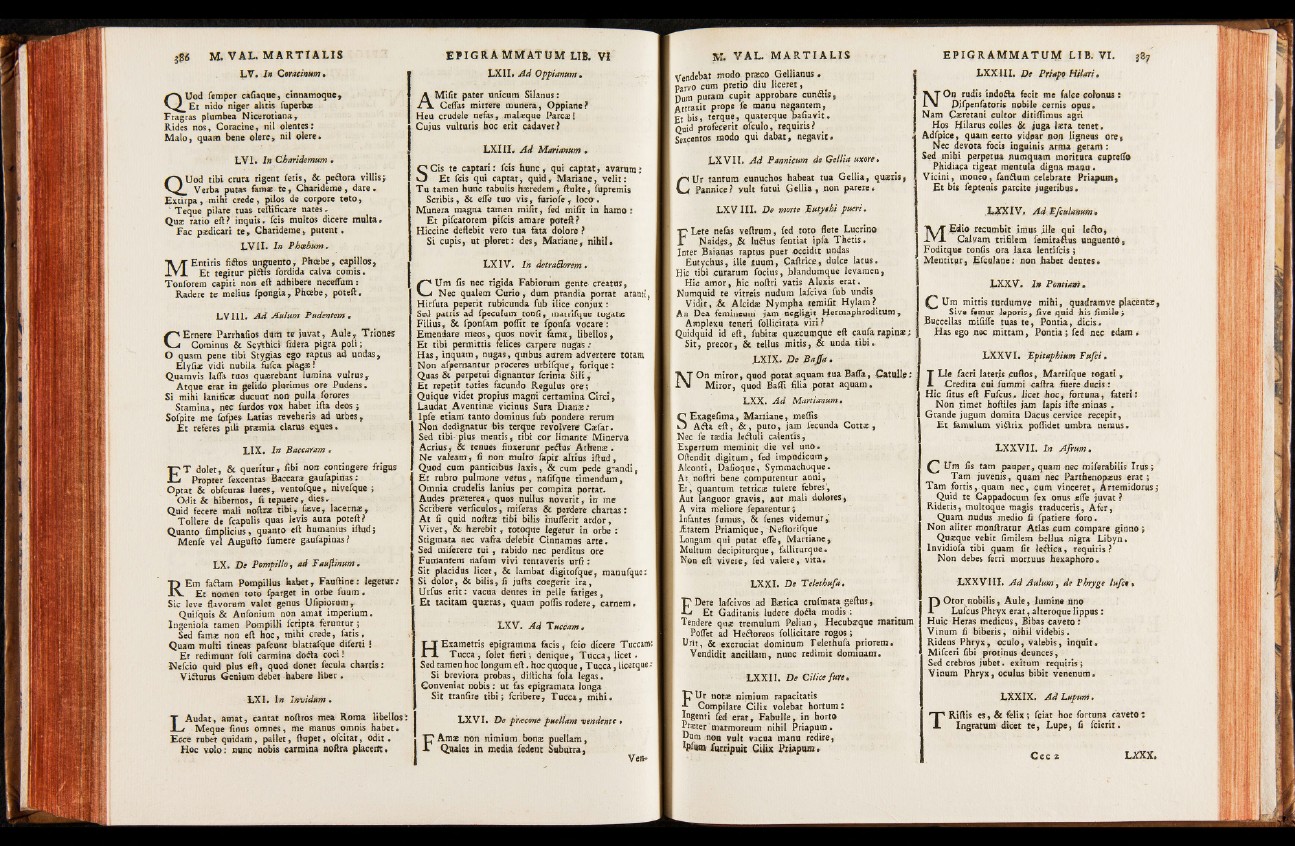 386 M. VAL. MARTIALIS
LV. In Coracinum.
QUod semper casiaque, cinnamoque,
Et nido niger alitis superbæ
Fragras plumbea Nicerotiana,
Rides nos, Coracine, nil olentes:
Malo, quam bene olere, nil olere.
LVI. In Charidemum.
QUod tibi crura rigent setis, & pectora villis;
Verba putas famæ te, Charideme, dare.
Extirpa, mihi crede, pilos de corpore toto,
Teque pilare tuas testificare nates.
Quæ ratio est? inquis. scis multos dicere multa.
Fac pædicari te, Charideme, putent.
LVII. In Phœbum.
MEntiris fictos unguento, Phœbe, capillos,
Et tegitur pictis sordida calva comis.
Tonsorem capiti non est adhibere necessum:
Radere te melius spongia, Phœbe, potest.
LVIII. Ad Aulum Pudentem.
CErnere Parrhasios dum te juvat, Aule, Triones
Cominus & Scythici sidera pigra poli;
O quam pene tibi Stygias ego raptus ad undas,
Elysiæ vidi nubila fusca plagæ!
Quamvis lassa tuos quærebant lumina vultus,
Atque erat in gelido plurimus ore Pudens.
Si mihi lanificæ ducunt non pulla sorores
Stamina, nec surdos vox habet ista deos;
Sospite me sospes Latias reveheris ad urbes,
Et referes pili præmia clarus eques.
LIX. In Baccaram.
ET dolet, & queritur, sibi non contingere frigus
Propter sexcentas Baccara gausapinas:
Optat & obscuras luces, ventosque, nivesque;
Odit & hibernos, si tepuere, dies.
Quid fecere mali nostræ tibi, sæve, lacernæ,
Tollere de scapulis quas levis aura potest?
Quanto simplicius, quanto est humanius istud;
Mense vel Augusto sumere gausapinas?
LX. De Pompillo, ad Faustinum.
REm factam Pompillus habet, Faustine: legetur:
Et nomen toto sparget in orbe suum.
Sic leve flavorum valet genus Usipiorum,
Quisquis & Ausonium non amat imperium.
Ingeniosa tamen Pompilli scripta feruntur;
Sed famæ non est hoc, mihi crede, satis.
Quam multi tineas pascunt blattasque diserti!
Et redimunt soli carmina docta coci!
Nescio quid plus est, quod donet secula chartis:
Victurus Genium debet habere liber.
LXI. In Invidum.
LAudat, amat, cantat nostros mea Roma libellos:
Meque sinus omnes, me manus omnis habet.
Ecce rubet quidam, pallet, stupet, oscitat, odit.
Hoc volo: nunc nobis carmina nostra placent.
EPIGRAMMATUM LIB. VI
LXII. Ad Oppianum.
AMisit pater unicum Silanus:
Cessas mittere munera, Oppiane?
Heu crudele nefas, malæque Parcæ!
Cujus vulturis hoc erit cadaver?
LXIII. Ad Marianum.
SCis te captari: scis hunc, qui captat, avarum:
Et scis qui captat, quid, Mariane, velit:
Tu tamen hunc tabulis hæredem, stulte, supremis
Scribis, & esse tuo vis, furiose, loco.
Munera magna tamen misit, sed misit in hamo:
Et piscatorem piscis amare potest?
Hiccine deflebit vero tua fata dolore?
Si cupis, ut ploret: des, Mariane, nihil.
LXIV. In detractorem.
CUm sis nec rigida Fabiorum gente creatus,
Nec qualem Curio, dum prandia portat aranti,
Hirsuta peperit rubicunda sub ilice conjux:
Sed patris ad speculum tonsi, matrisque togatæ
Filius, & sponsam possit te sponsa vocare:
Emendare meos, quos novit fama, libellos,
Et tibi permittis felices carpere nugas:
Has, inquam, nugas, quibus aurem advertere totam
Non aspernantur proceres urbisque, forique:
Quas & perpetui dignantur scrinia Sili,
Et repetit toties facundo Regulus ore;
Quique videt propius magni certamina Circi,
Laudat Aventinæ vicinus Sura Dianæ:
Ipse etiam tanto dominus sub pondere rerum
Non dedignatur bis terque revolvere Cæsar.
Sed tibi plus mentis, tibi cor limante Minerva
Acrius, & tenues finxerunt pectus Athenæ.
Ne valeam, si non multo sapit altius istud,
Quod cum panticibus laxis, & cum pede grandi,
Et rubro pulmone vetus, nasisque timendum,
Omnia crudelis lanius per compita portat.
Audes præterea, quos nullus noverit, in me
Scribere versiculos, miseras & perdere chartas:
At si quid nostræ tibi bilis inusserit ardor,
Vivet, & hærebit, totoque legetur in orbe:
Stigmata nec vafra delebit Cinnamus arte.
Sed miserere tui, rabido nec perditus ore
Fumantem nasum vivi tentaveris ursi:
Sit placidus licet, & lambat digitosque, manusque:
Si dolor, & bilis, si justa coegerit ira,
Ursus erit: vacua dentes in pelle fatiges,
Et tacitam quæras, quam possis rodere, carnem.
LXV. Ad Tuccam.
HExametris epigramma facis, scio dicere Tuccam:
Tucca, solet fieri; denique, Tucca, licet.
Sed tamen hoc longum est. hoc quoque, Tucca, licetque:
Si breviora probas, disticha sola legas.
Conveniat nobis: ut fas epigramata longa
Sit transire tibi; scribere, Tucca, mihi.
LXVI. De præcone puellam vendente.
FAmæ non nimium bonæ puellam,
Quales in media sedent Suburra,
Ven-
M. VAL. MARTIALIS
Vendebat modo præco Gellianus.
Parvo cum pretio diu liceret,
Dum puram cupit approbare cunctis,
Attraxit prope se manu negantem,
Et bis, terque, quaterque basiavit.
Quid profecerit osculo, requiris?
Sexcentos modo qui dabat, negavit.
LXVII. Ad Pannicum de Gellia uxore.
CUr tantum eunuchos habeat tua Gellia, quæris,
Pannice? vult futui Gellia, non parere.
LXVIII. De morte Eutychi pueri.
FLete nefas vestrum, sed toto flete Lucrino
Naides, & luctus sentiat ipsa Thetis.
Inter Baianas raptus puer occidit undas
Eutychus, ille tuum, Castrice, dulce latus.
Hic tibi curarum socius, blandumque levamen,
Hic amor, hic nostri vatis Alexis erat.
Numquid te vitreis nudum lasciva sub undis
Vidit, & Alcidæ Nympha remisit Hylam?
An Dea femineum jam negligit Hermaphroditum,
Amplexu teneri sollicitata viri?
Quidquid id est, subitæ quæcumque est causa rapinæ;
Sit, precor, & tellus mitis, & unda tibi.
LXIX. De Bassa.
NOn miror, quod potat aquam tua Bassa, Catulle:
Miror, quod Bassi filia potat aquam.
LXX. Ad Martianum.
SExagesima, Martiane, messis
Acta est, &, puto, jam secunda Cottæ,
Nec se tædia lectuli calentis,
Expertum meminit die vel uno.
Ostendit digitum, sed impudicum,
Alconti, Dasioque, Symmachoque.
At nostri bene computentur anni,
Et, quantum tetricæ tulere febres,
Aut languor gravis, aut mali dolores,
A vita meliore separentur;
Infantes sumus, & senes videmur,
Ætatem Priamique, Nestorisque
Longam qui putat esse, Martiane,
Multum decipiturque, falliturque.
Non est vivere, sed valere, vita.
LXXI. De Telethusa.
EDere lascivos ad Bætica crusmata gestus,
Et Gaditanis ludere docta modis:
Tendere quæ tremulum Pelian, Hecubæque maritum
Posset ad Hectoreos sollicitare rogos;
Urit, & excruciat dominum Telethusa priorem.
Vendidit ancillam, nunc redimit dominam.
LXXII. De Cilice fure.
FUr notæ nimium rapacitatis
Compilare Cilix volebat hortum:
Ingenti sed erat, Fabulle, in horto
Præter marmoreum nihil Priapum.
Dum non vult vacua manu redire,
Ipsum surripuit Cilix Priapum.
EPIGRAMMATUM LIB. VI. 387
LXXIII. De Priapo Hilari.
NOn rudis indocta fecit me falce colonus:
Dispensatoris nobile cernis opus.
Nam Cæretani cultor ditissimus agri
Hos Hilarus colles & juga læta tenet.
Adspice, quam certo videar non ligneus ore,
Nec devota focis inguinis arma geram:
Sed mihi perpetua numquam moritura cupresso
Phidiaca rigeat mentula digna manu.
Vicini, moneo, sanctum celebrate Priapum,
Et bis septenis parcite jugeribus.
LXXIV. Ad Esculanum.
MEdio recumbit imus ille qui lecto,
Calvam trifilem semitactus unguento,
Foditque tonsis ora laxa lentiscis;
Mentitur, Esculane: non habet dentes.
LXXV. In Pontiam.
CUm mittis turdumve mihi, quadramve placentæ,
Sive femur leporis, sive quid his simile;
Buccellas misisse tuas te, Pontia, dicis.
Has ego nec mittam, Pontia; sed nec edam.
LXXVI. Epitaphium Fusci.
ILle sacri lateris custos, Martisque togati,
Credita cui summi castra fuere ducis:
Hic situs est Fuscus. licet hoc, fortuna, fateri:
Non timet hostiles jam lapis iste minas.
Grande jugum domita Dacus cervice recepit,
Et famulum victrix possidet umbra nemus.
LXXVII. In Afrum.
CUm sis tam pauper, quam nec miserabilis Irus;
Tam juvenis, quam nec Parthenopæus erat;
Tam fortis, quam nec, cum vinceret, Artemidorus;
Quid te Cappadocum sex onus esse juvat?
Rideris, multoque magis traduceris, Afer,
Quam nudus medio si spatiere foro.
Non aliter monstratur Atlas cum compare ginno;
Quæque vehit similem bellua nigra Libyn.
Invidiosa tibi quam sit lectica, requiris?
Non debes ferri mortuus hexaphoro.
LXXVIII. Ad Aulum, de Phryge lusco.
POtor nobilis, Aule, lumine uno
Luscus Phryx erat, alteroque lippus:
Huic Heras medicus, Bibas caveto:
Vinum si biberis, nihil videbis.
Ridens Phryx, oculo, valebis, inquit.
Misceri sibi protinus deunces,
Sed crebros jubet. exitum requiris;
Vinum Phryx, oculus bibit venenum.
LXXIX. Ad Lupum.
TRistis es, & felix; sciat hoc fortuna caveto:
Ingratum dicet te, Lupe, si scierit.
Ccc 2 LXXX.